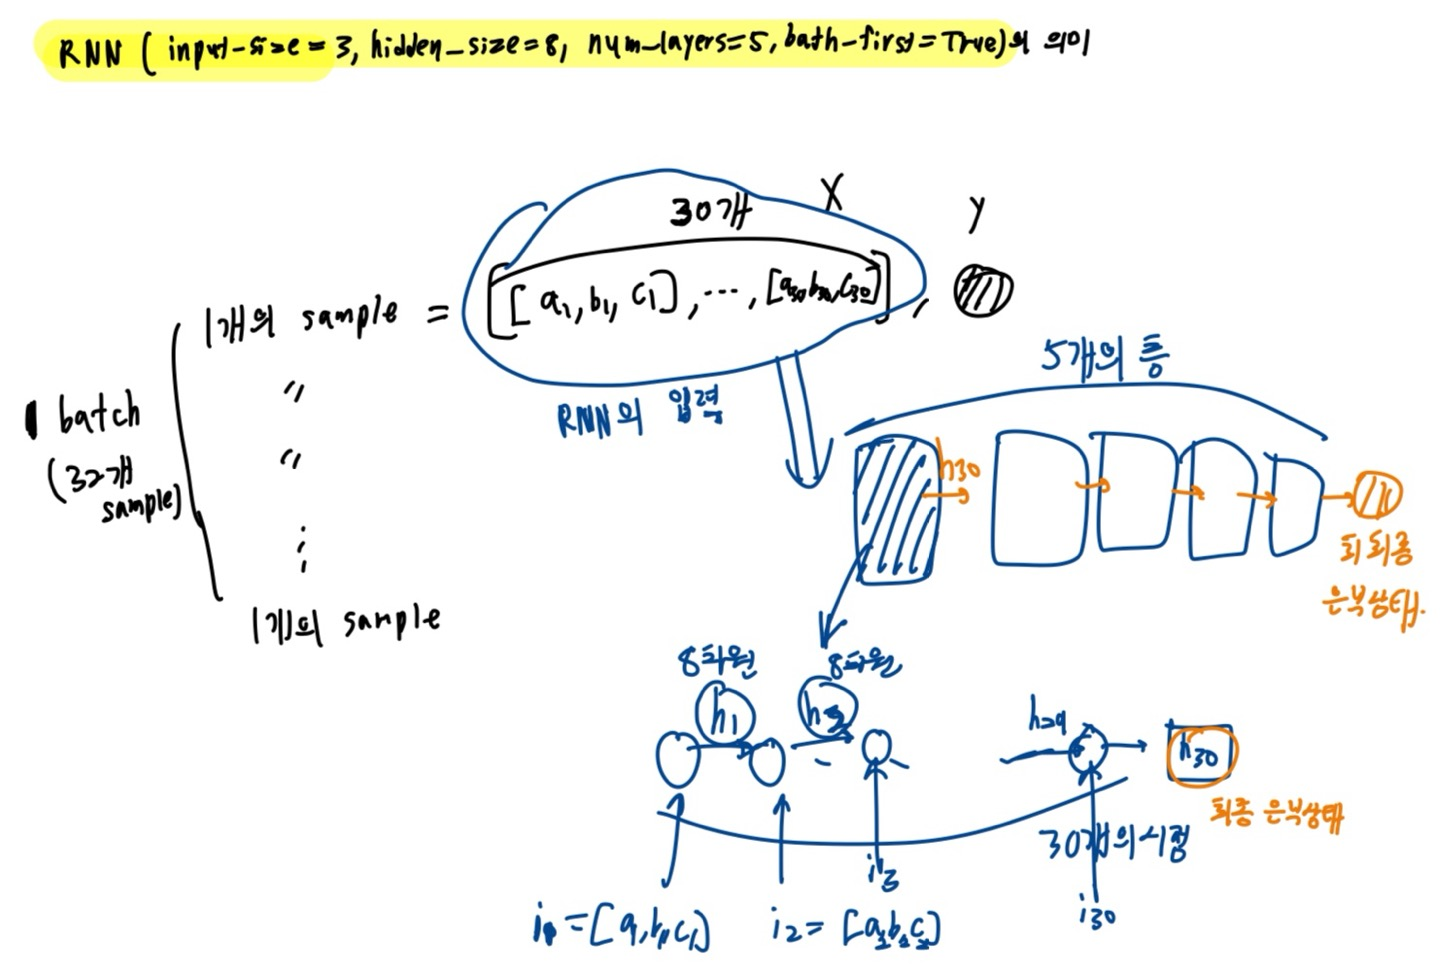 RNN ( input-size = 3, hidden_size=8, num_layers=5, bath-first=True)의 의미
30개 X
Y
1개의 sample = [[a1, b1, c1], ..., [a30, b30, c30]],
5개의 층
RNN의 입력
1 batch
(32개
sample)
〃
〃
⋮
1개의 sample
h30
최최종
은닉상태.
8차원
8차원
h1
h2
h29
h30
최종 은닉상태
30개의 시점
i3
i30
i1 = [a1, b1, c1]
i2 = [a2 b2 c2]